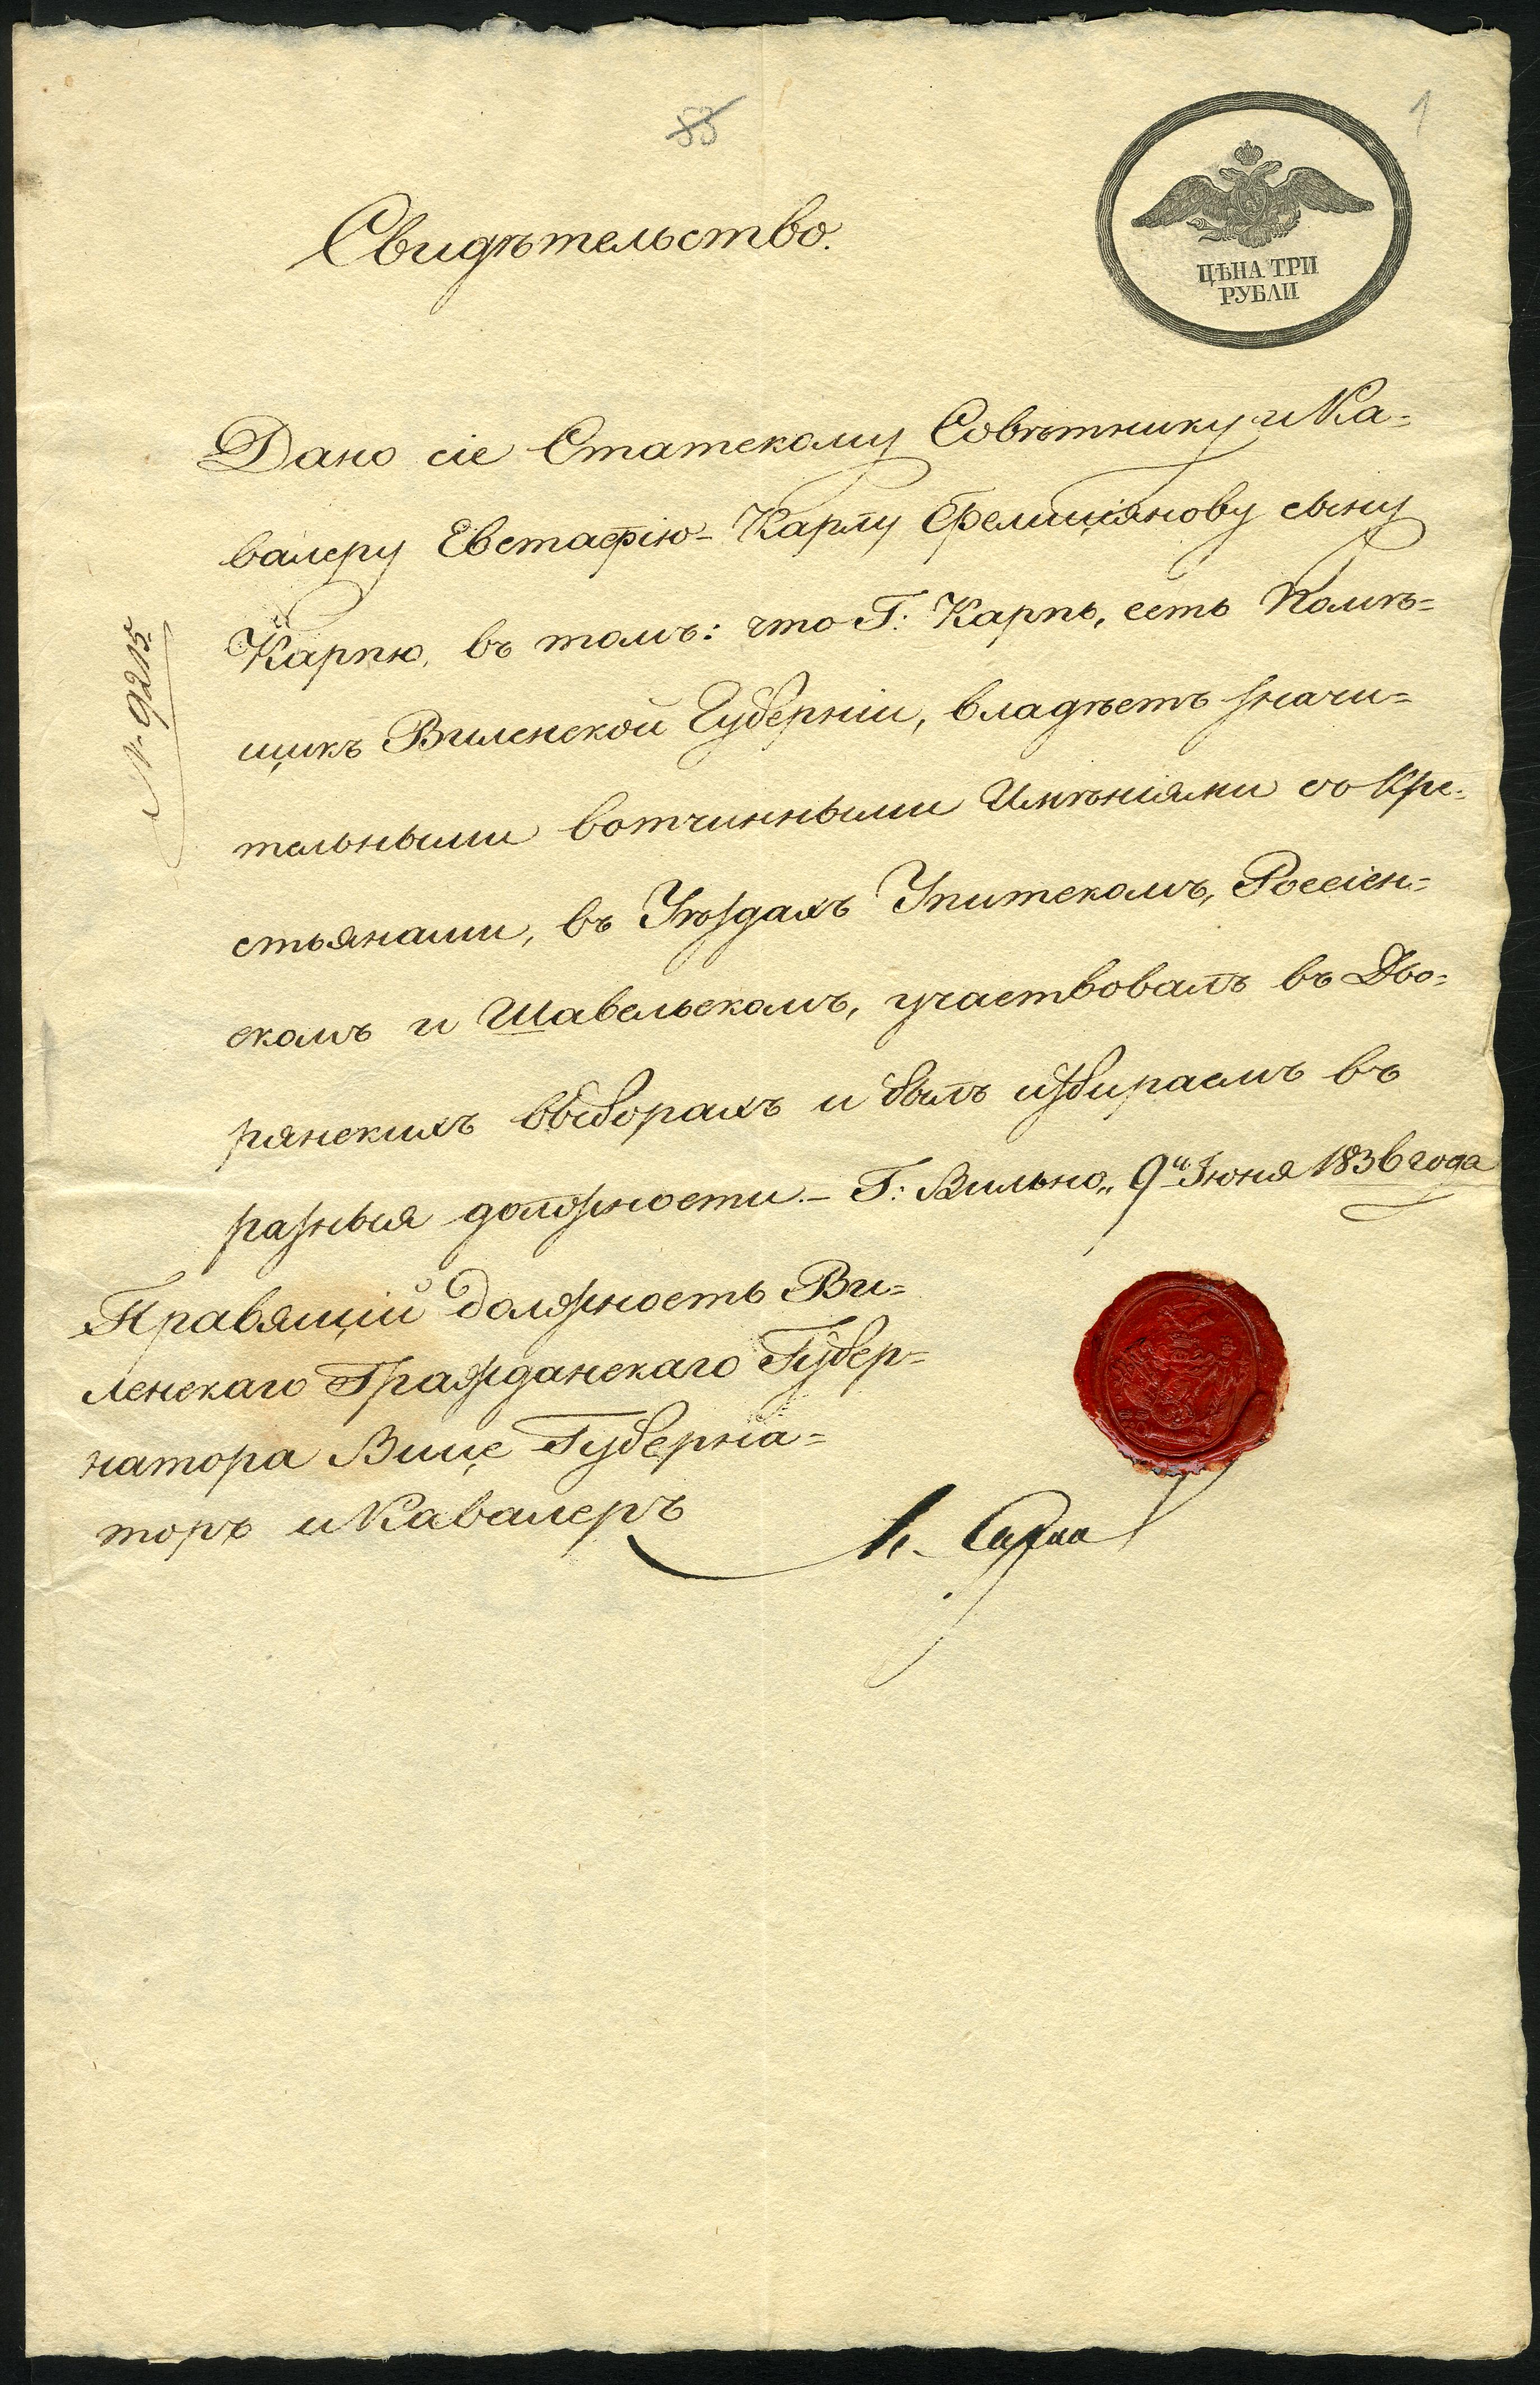 83
1
ЦѢНА ТРИ
РУБЛИ
Свидѣтельство.
Дано сіе Статскому Совѣтнику и Ка=
валеру Евстафію-Карлу Фелиціянову сыну
Карпю, въ томъ: что Г: Карпь, есть Помѣ=
щикъ Виленской Губерніи, владѣетъ значи=
тельными вотчинными Имѣніями со Кре=
стьянами, въ Уѣздахъ Упитскомъ, Россіен=
скомъ и Шавельскомъ, участвовалъ въ Дво=
рянскихъ выборахъ и былъ избираемъ въ
разныя должности.- Г: Вильно,, 9го Іюня 1836 года
№ 9215.
Правящій должность Ви=
ленскаго Гражданскаго Губер=
натора Вице Губерна=
торъ и Кавалеръ